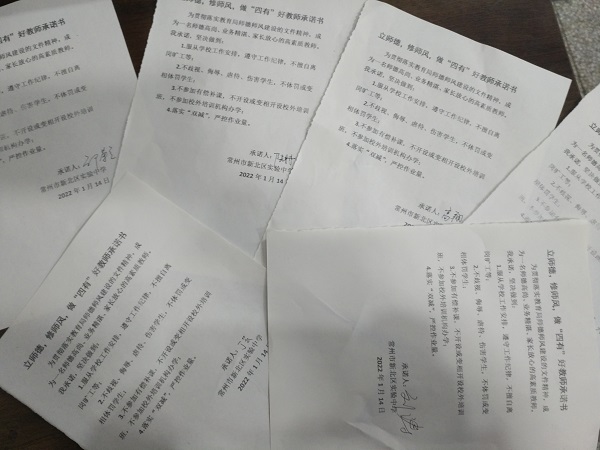 好教师承诺书
师风建设的文件精神，成
、家长放心的高素质教师，
遵守工作纪律，不擅自离
伤害学生，不体罚或变
不开设或变相开设校外培训
办学；
严控作业量。
承诺人：
常州市新北区实验中学
2022 年 1 月 14 日
立师德，修师风，做“四有”好教师承诺书
为贯彻落实教育局师德师风建设的文件精神，成
为一名师德高尚、业务精湛、家长放心的高素质教师，
我承诺，坚决做到：
1.服从学校工作安排，遵守工作纪律，不擅自离
岗旷工等；
2.不歧视、侮辱、虐待、伤害学生，不体罚或变
相体罚学生；
3.不参加有偿补课，不开设或变相开设校外培训
班，不参加校外培训机构办学；
4.落实“双减”，严控作业量。
承诺人：
常州市新北区实验中学
2022 年 1 月 14 日
立师德，修师风，做“四有”好教师承诺书
为贯彻落实教育局师德师风建设的文件精神，成
为一名师德高尚、业务精湛、家长放心的高素质教师，
我承诺，坚决做到：
1.服从学校工作安排，遵守工作纪律，不擅自离
岗旷工等；
2.不歧视、侮辱、虐待、伤害学生，不体罚或变
相体罚学生；
3.不参加有偿补课，不开设或变相开设校外培训
班，不参加校外培训机构办学；
4.落实“双减”，严控作业量。
承诺人：
常州市新北区实验中学
立师德，修师风，做“四有”好教师承诺书
为贯彻落实教育局师德师风建设的文件精神，成
为一名师德高尚、业务精湛、家长放心的高素质教师，
我承诺，坚决做到：
1.服从学校工作安排，遵守工作纪律，不擅自离
岗旷工等；
2.不歧视、侮辱、虐待、伤害学生，不体罚或变
相体罚学生；
3.不参加有偿补课，不开设或变相开设校外培训
班，不参加校外培训机构办学；
4.落实“双减”，严控作业量。
承诺人：
常州市新北区实验中学
2022 年 1 月 14 日
立师德，修师风，做“四有”好教师承诺书
为贯彻落实教育局师德师风建设的文件精神，成
为一名师德高尚、业务精湛、家长放心的高素质教师，
我承诺，坚决做到：
1.服从学校工作安排，遵守工作纪律，不擅自离
岗旷工等；
2.不歧视、侮辱、虐待、伤害学生，不体罚或变
相体罚学生；
3.不参加有偿补课，不开设或变相开设校外培训
班，不参加校外培训机构办学；
4.落实“双减”，严控作业量。
承诺人：
常州市新北区实验中学
2022 年 1 月 14 日